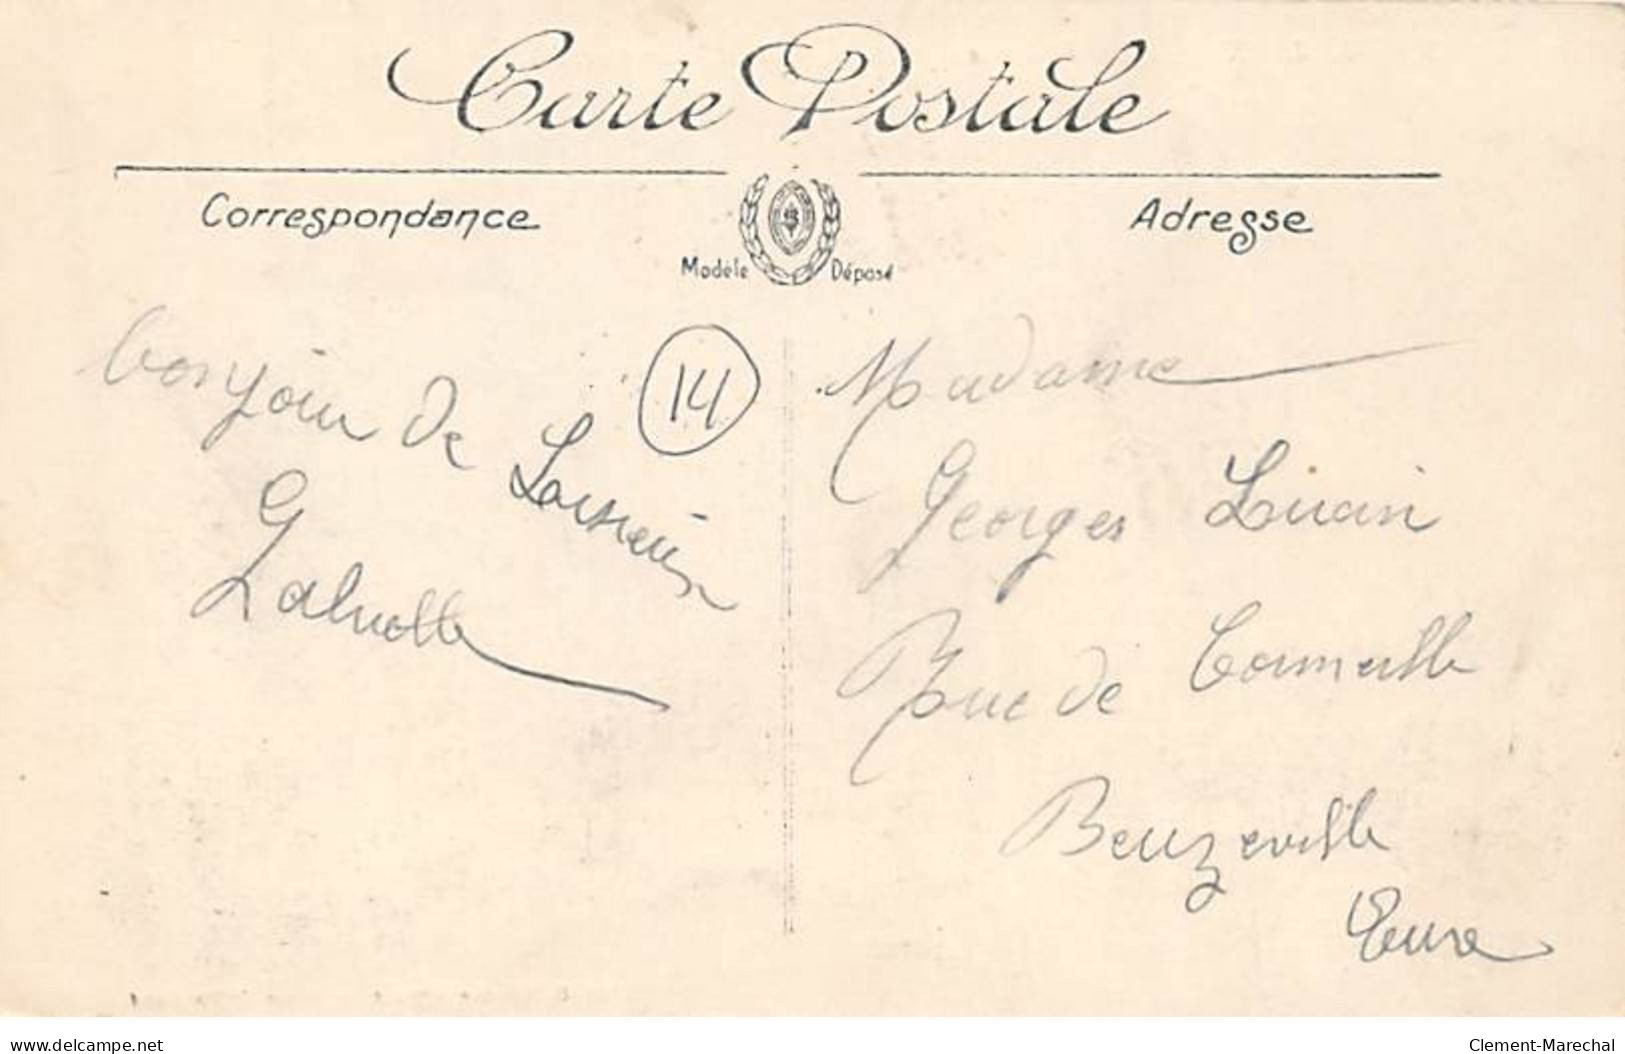 Carte Postale
Correspondance
Adresse
Modèle Déposé
bonjour de
14
G
Madame
Georges
Rue de Cormeille
Beuzeville
Eure
www.delcampe.net
Clement-Marechal